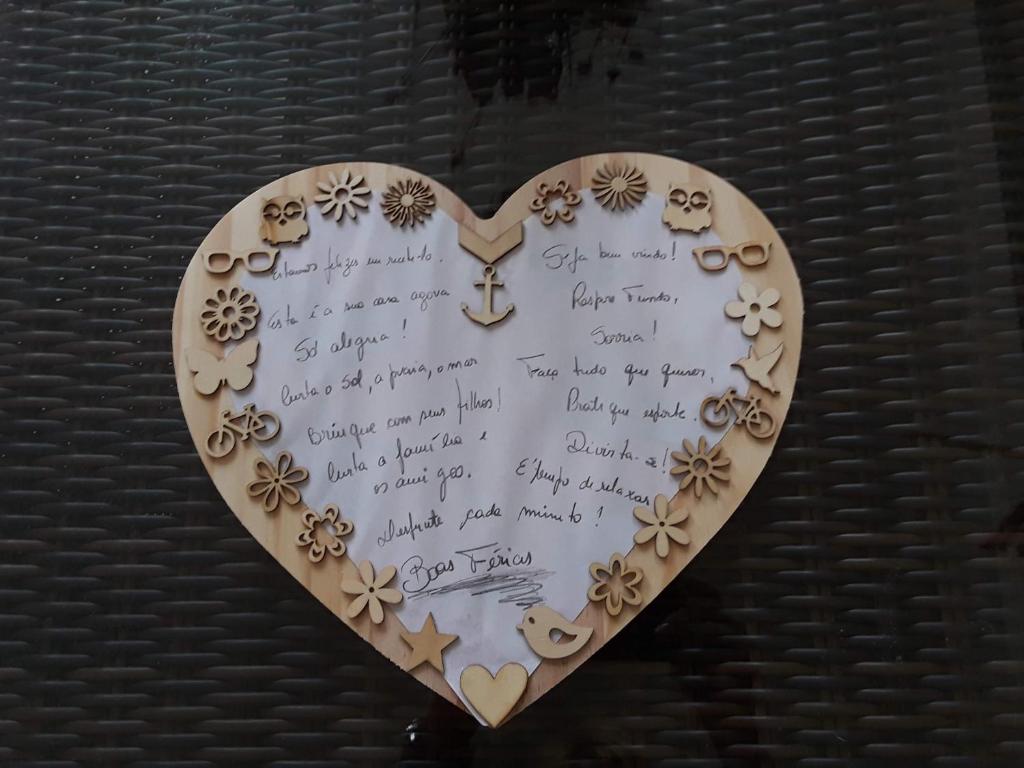 Estamos felizes em recebê-lo.
Esta é a sua casa agora
Só alegria!
Curta o sol, a praia, o mar
Brinque com seus filhos!
Curta a família e
os amigos.
Seja bem vindo!
Respire Fundo,
Sorria!
Faça tudo que quiser,
Pratique esporte.
Divirta-se!
É tempo de relaxar
Desfrute cada minuto!
Boas Férias